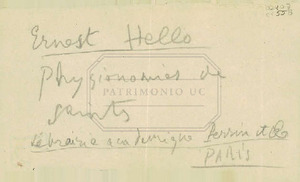 Ernest Hello
Physionomies de
saints
PATRIMONIO UC
Librairie académique Perrin et Cie
PARIS